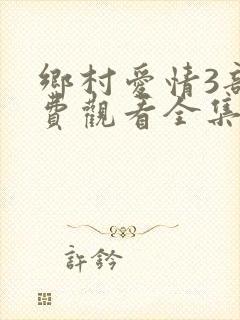 鄉村愛情3高
費觀看全集
許鈐